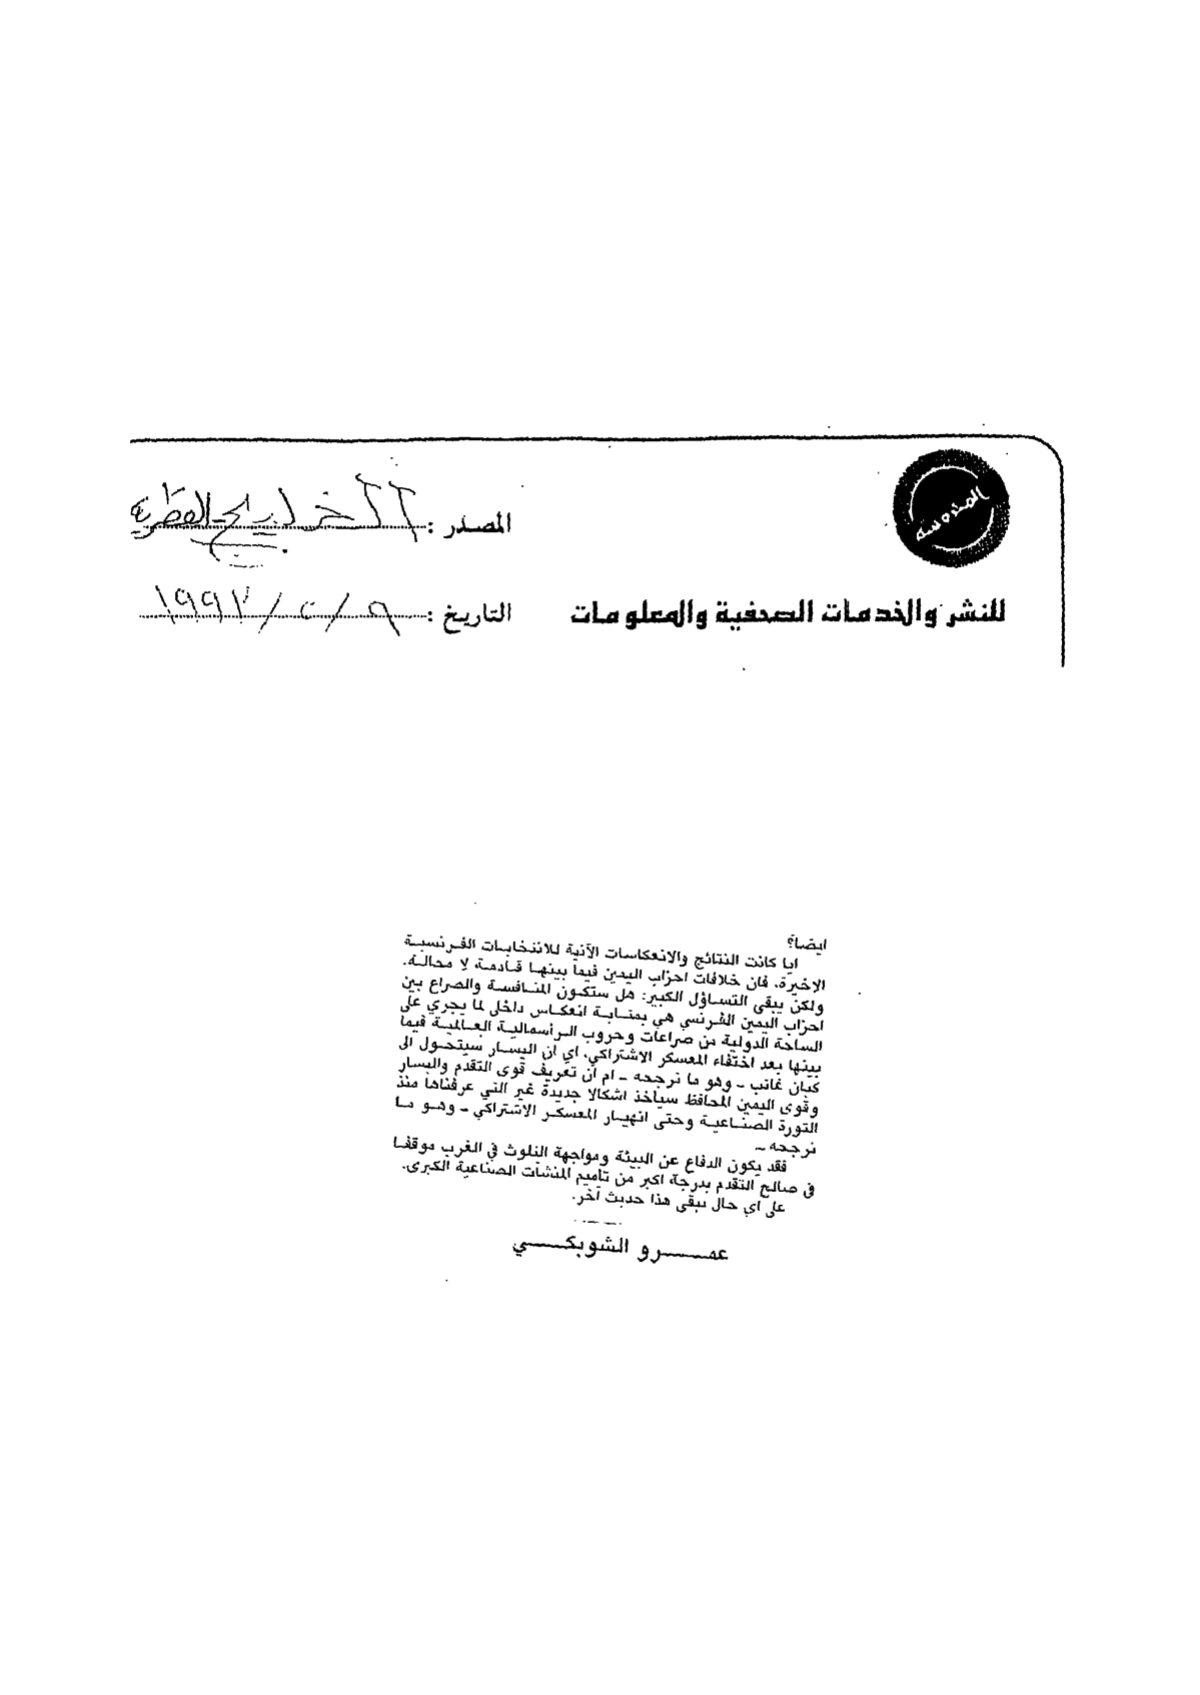 المصدر : الخليج القطرية
للنشر والخدمات الصحفية والمعلومات
التاريخ : ٩ / ٥ /
ايضا؟
ايا كانت النتائج والانعكاسات الآنية للانتخابات الفرنسية
الاخيرة، فان خلافات احزاب اليمين فيما بينها قادمة لا محالة.
ولكن يبقى التساؤل الكبير: هل ستكون المنافسة والصراع بين
احزاب اليمين الفرنسي هي بمثابة انعكاس داخلي لما يجري على
الساحة الدولية من صراعات وحروب الرأسمالية العالمية فيما
بينها بعد اختفاء المعسكر الاشتراكي، اي ان اليسار سيتحول الى
كيان غائب - وهو ما نرجحه - ام ان تعريف قوى التقدم واليسار
وقوى اليمين المحافظ سيأخذ اشكالا جديدة غير التي عرفناها منذ
الثورة الصناعية وحتى انهيار المعسكر الاشتراكي - وهو ما
نرجحه -
فقد يكون الدفاع عن البيئة ومواجهة التلوث في الغرب موقفا
في صالح التقدم بدرجة اكبر من تأميم المنشآت الصناعية الكبرى.
على اي حال يبقى هذا حديث آخر.
عمرو الشوبكي